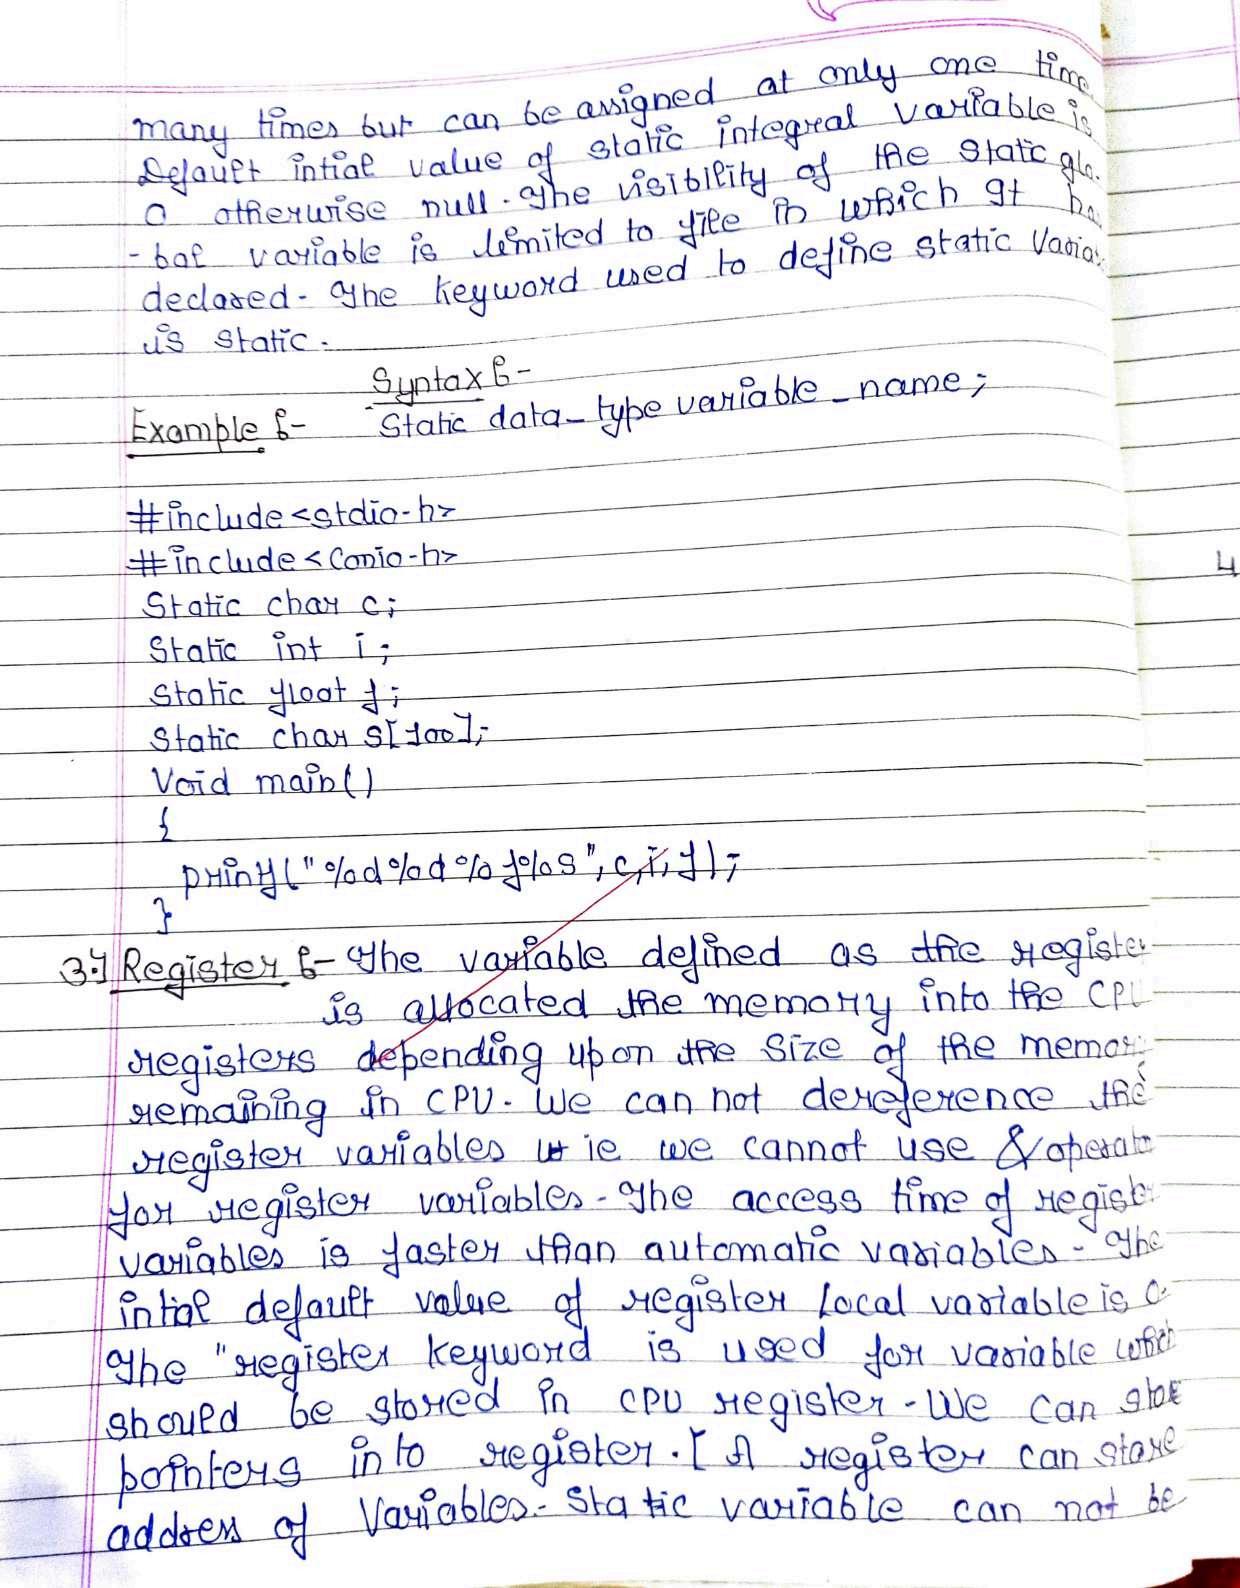 many times but can be assigned at only one time
Default intial value of static integral variable is
0 otherwise null. The visibility of the static glo-
-bal variable is limited to file in which It ha
declared. The keyword used to define static Varia
is static.
Syntax :-
Example :- Static data_type variable_name;
#include<stdio.h>
#include<conio.h>
Static char c;
Static int i;
Static float f;
Static char s[100];
Void main()
{
printf("%d%d%f%s",c,i,f);
}
3.} Register :- The variable defined as the register
is allocated the memory into the CPU
registers depending upon the size of the memor
remaining in CPU. We can not dereference the
register variables ie we cannot use & operato
for register variables. The access time of regist
variables is faster than automatic variables. The
intial default value of register local variable is 0.
The "register keyword is used for variable which
should be stored in CPU register. We can store
pointers into register. [A register can store
address of Variables. Static variable can not be
4